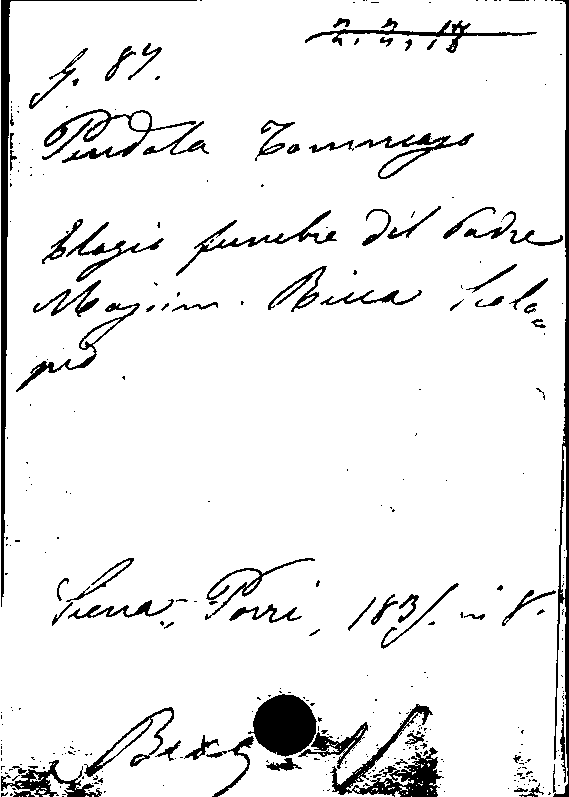 G. 87.
Pendola Tommaso
Elogio funebre del Padre
Massim. Ricca Scolo=
pio.
Siena, Porri, 183 in 8.